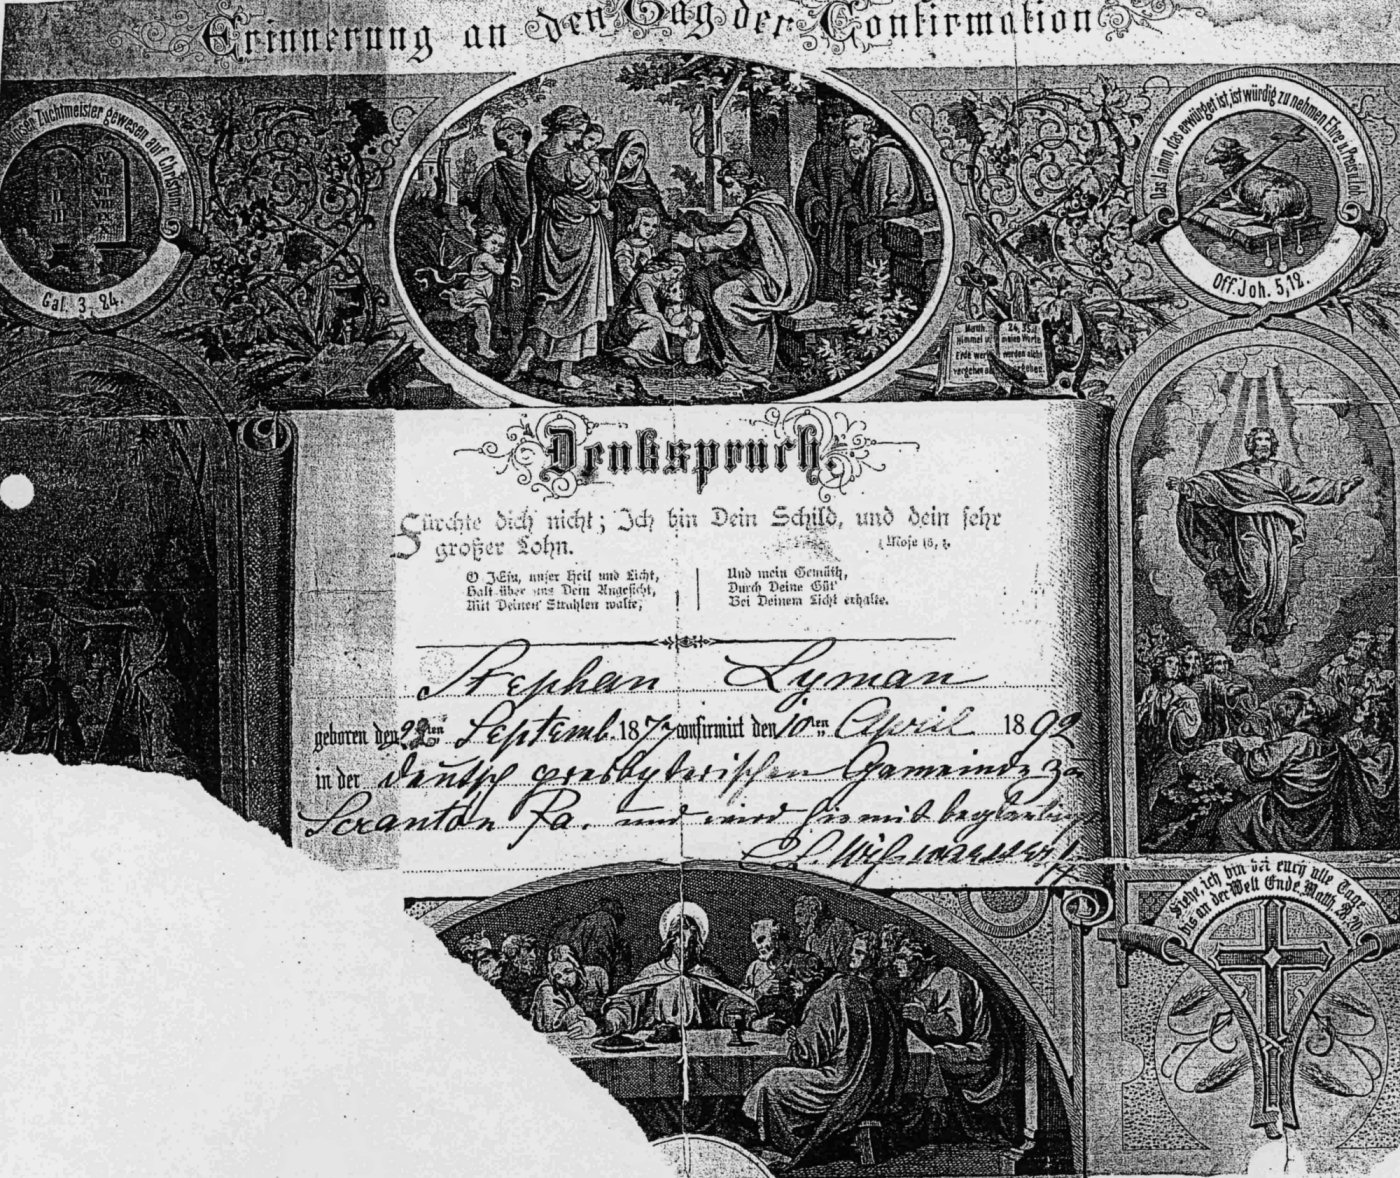 Erinnerung an den Tag der Confirmation
unser Zuchtmeister gewesen auf Christum
Gal. 3, 24.
Das Lamm das erwürget ist, ist würdig zu nehmen Ehre u Preis u Lob
Off. Joh. 5,12.
I
II
III
VII
VIII
IX
X
Matth. 24, 35
Himmel u. meine Worte
Erde werden werden nicht
vergehen a. vergehen.
Denkspruch
Fürchte dich nicht; Ich bin Dein Schild, und dein sehr
großer Lohn.
1 Mose 15, 1.
O JEsu, unser Heil und Licht,
Halt über uns Dein Angesicht,
Mit Deinen Strahlen walte,
Und mein Gemüth,
Durch Deine Güt'
Bei Deinem Licht erhalte.
Stephan Lyman
geboren den 22ten Septemb. 1877 confirmirt den 10ten April 1892
in der deutsch presbyterischen Gemeinde zu
Scranton Pa. und wird hiermit beglaubigt
Siehe, ich bin bei euch alle Tage
bis an der Welt Ende. Matth. 28, 20.